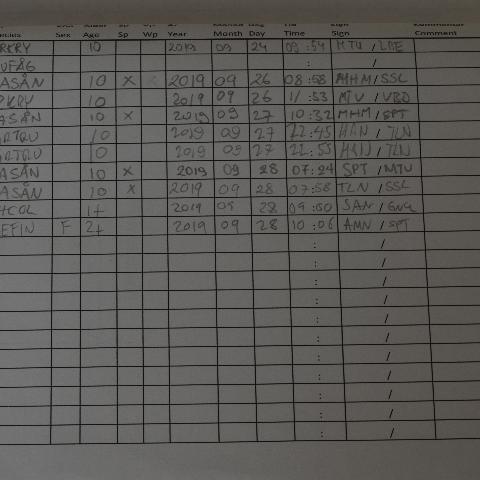 Sex Age Sp Wp Year Month Day Time Sign Comment
RKRY 10 2019 09 24 09:54 MTU / LBE
UFÅG : /
ASÅN 10 X 2019 09 26 08:58 MHM/SSL
RKRY 10 2019 09 26 11:53 MTU / VBD
ASÅN 10 X 2019 09 27 10:32 MHM/SPT
RTRU 10 2019 09 27 22:45 HAN / TLN
RTRU 10 2019 09 27 22:55 HAN / TLN
ASÅN 10 X 2019 09 28 07:24 SPT / MTU
ASÅN 10 X 2019 09 28 07:58 TLN / SSL
HCOL 1+ 2019 09 28 09:50 SAN /
EFIN F 2+ 2019 09 28 10:06 AMN / SPT
: /
: /
: /
: /
: /
: /
: /
: /
: /
: /
: /